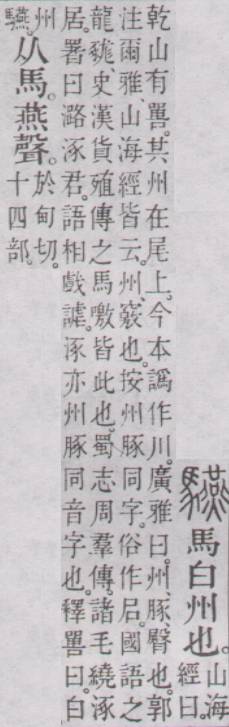 驠 馬白州也。山海
經曰。
乾山有嘼。其州在尾上。今本譌作川。廣雅曰。州、豚、臀也。郭
注爾雅、山海經皆云。州、竅也。按州豚同字。俗作𡰪。國語之
龍𧱓、史漢貨殖傳之馬噭皆此也。蜀志周羣傳。諸毛繞涿
居。署曰潞涿君。語相戲謔。涿亦州豚同音字也。釋嘼曰。白
州
驠。从馬。燕聲。於甸切。
十四部。